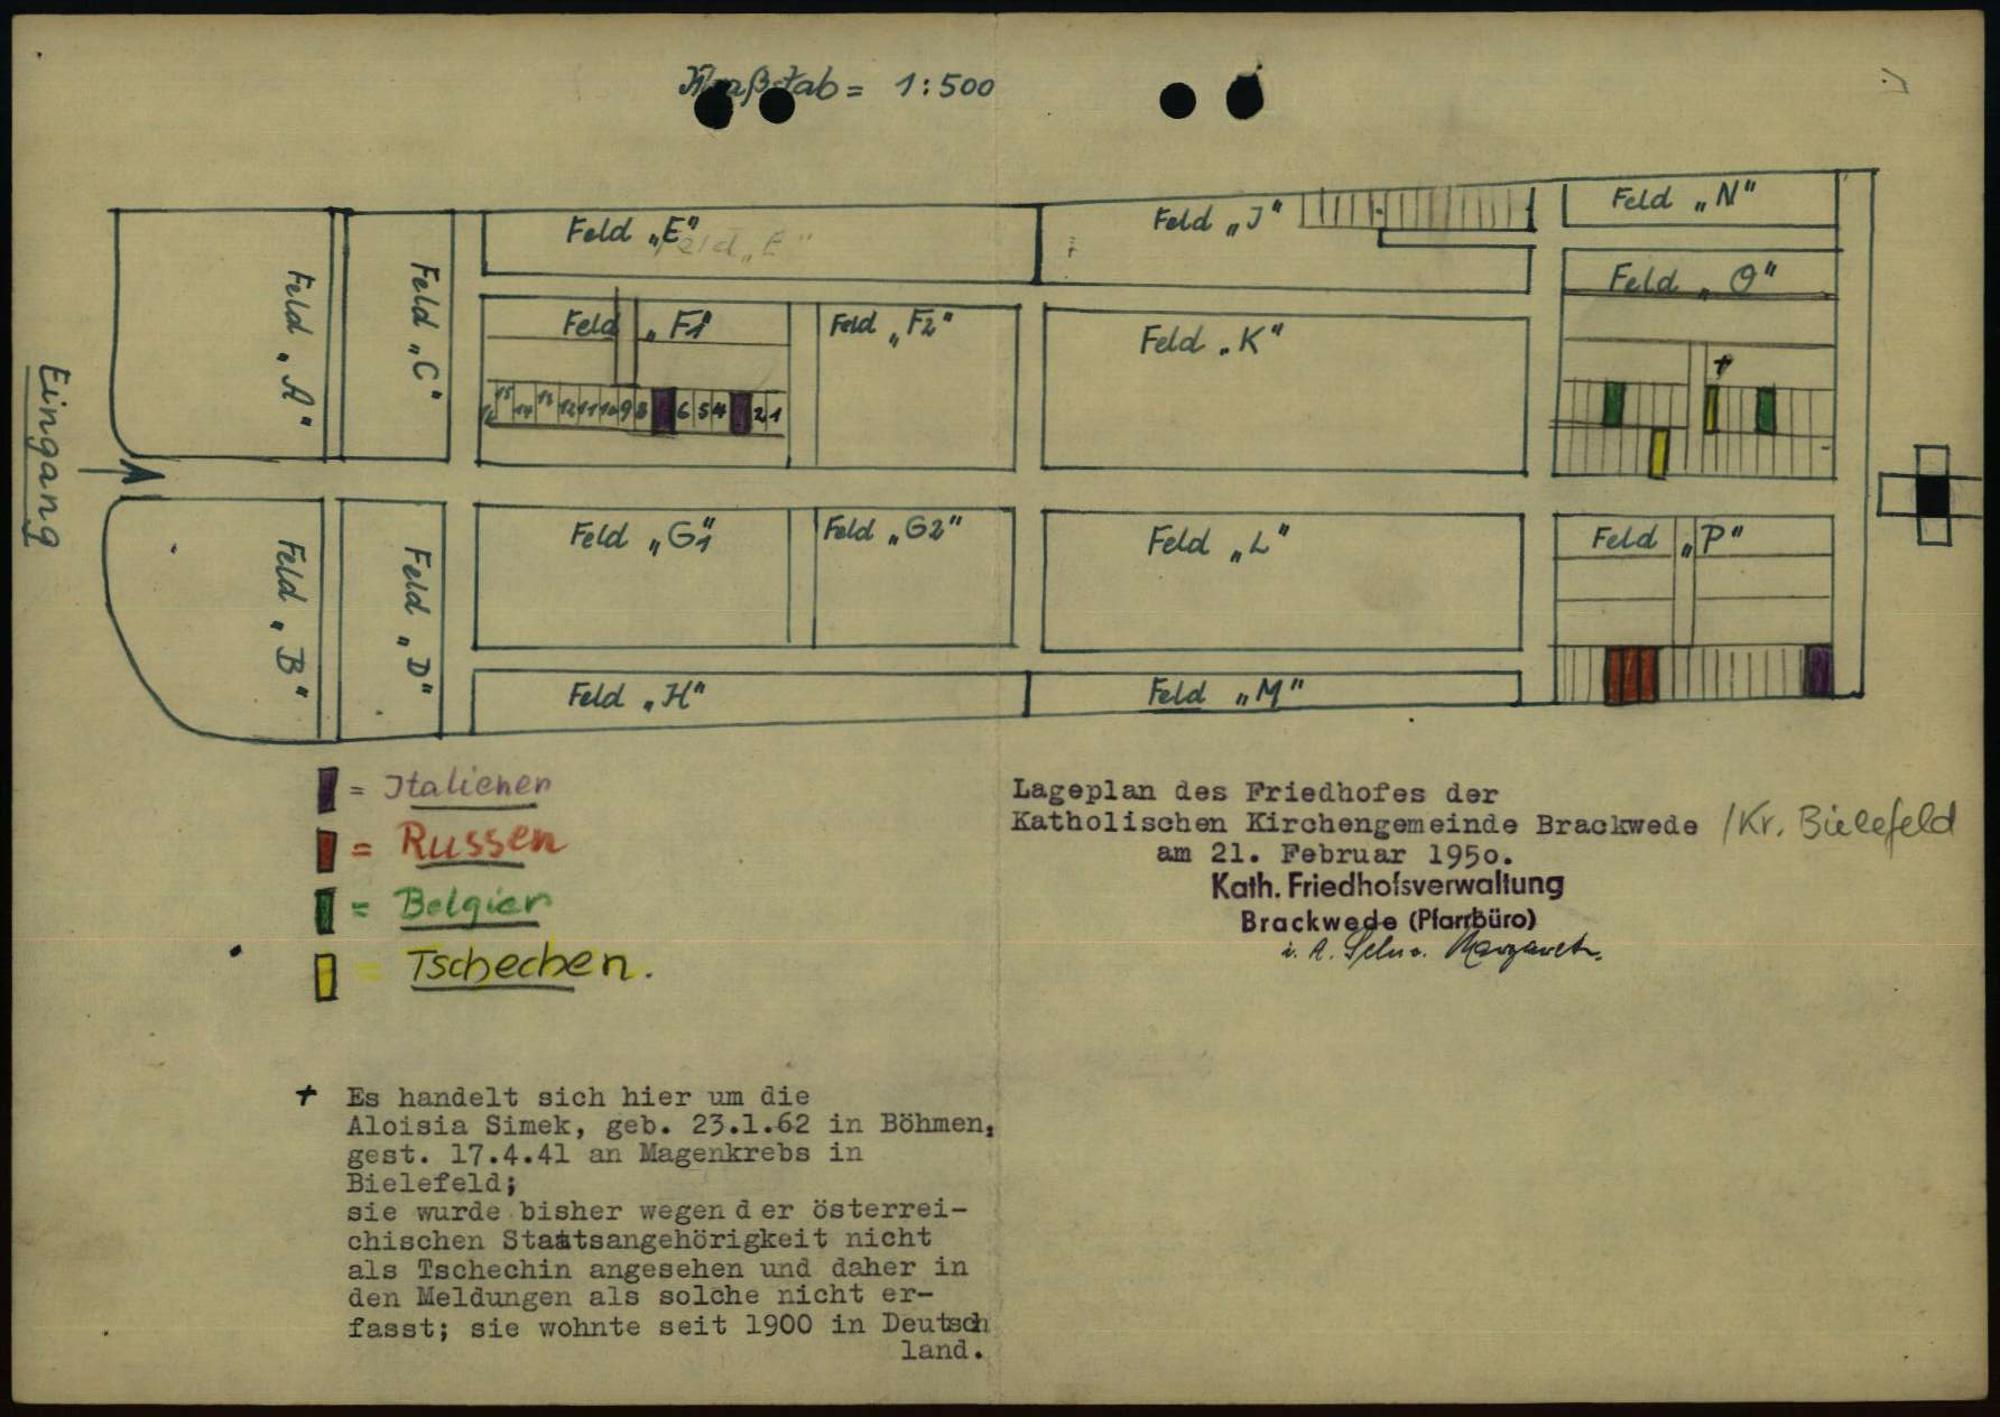 Maßstab = 1:500
Feld „E"
Feld „E"
Feld „J"
Feld „N"
Feld „O"
Feld „A"
Feld „C"
Feld „F1"
Feld „F2"
Feld „K"
+
15 14 13 12 11 10 9 8 6 5 4 2 1
Eingang
Feld „B"
Feld „D"
Feld „G1"
Feld „G2"
Feld „L"
Feld „P"
Feld „H"
Feld „M"
= Italiener
= Russen
= Belgier
= Tschechen.
Lageplan des Friedhofes der
Katholischen Kirchengemeinde Brackwede /Kr. Bielefeld
am 21. Februar 1950.
Kath. Friedhofsverwaltung
Brackwede (Pfarrbüro)
i. A.
+ Es handelt sich hier um die
Aloisia Simek, geb. 23.1.62 in Böhmen,
gest. 17.4.41 an Magenkrebs in
Bielefeld;
sie wurde bisher wegen der österrei-
chischen Staatsangehörigkeit nicht
als Tschechin angesehen und daher in
den Meldungen als solche nicht er-
fasst; sie wohnte seit 1900 in Deutsch
land.